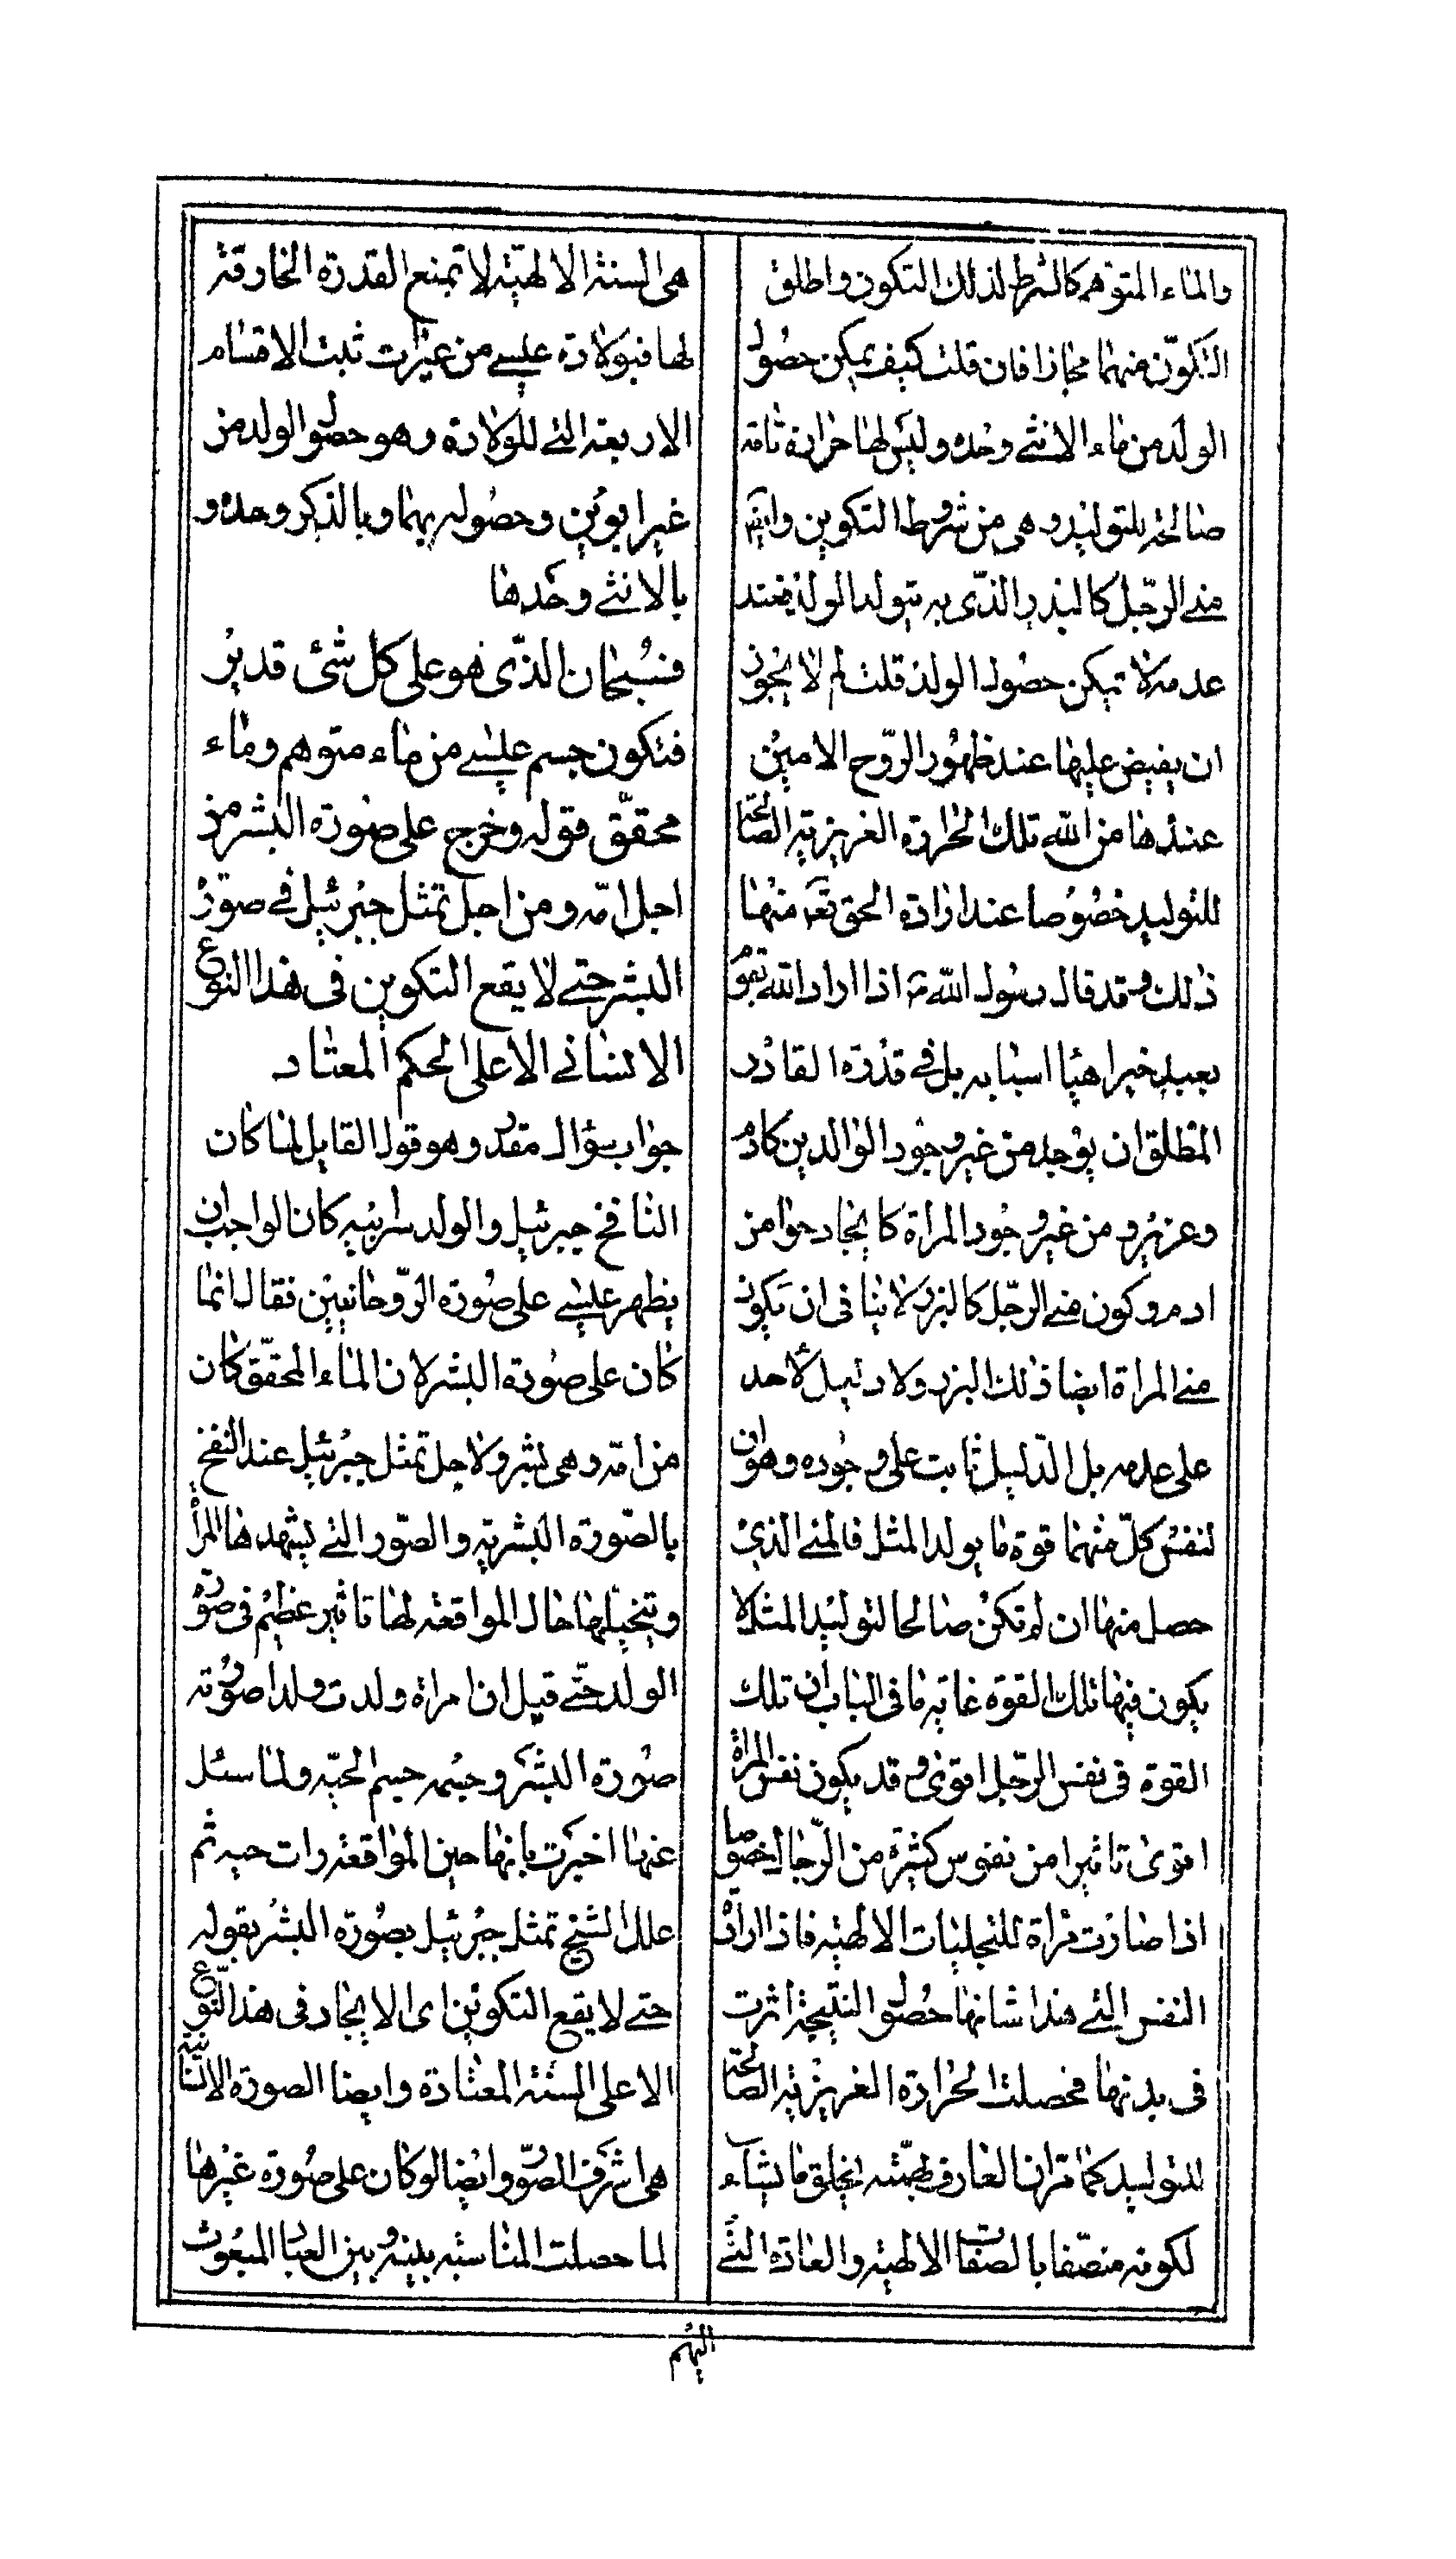 والماء المتوهم كالشرط لذلك التكون واطلق
التكوّن منهما مجازا فان قلت كيف يمكن حصول
الولد من ماء الانثى وحده وليس لها حرارة تامة
صالحة للتوليد وهى من شروط التكوين وايضا
منى الرّجل كالبذر الذّى به يتولد الولد فعند
عدمه لا تمكن حصول الولد قلت لم لا يجوز
ان يفيض عليها عند ظهور الرّوح الامين
عندها من الله تلك الحرارة الغريزية الصالحة
للتوليد خصوصا عند ارادة الحق تعه منها
ذلك وقد قال رسول الله ص اذا اراد الله بمو
بعبد خيرا هيّا اسبابه بل فى قدرة القادر
المطلق ان يوجد من غير وجود الوالدين كادم
وعزير و من غير وجود المراة كايجاد حوا من
ادم وكون منى الرّجل كالبزر لا ينافى ان يكون
منى المراة ايضا ذلك البزر ولا دليل لاحد
على عدمه بل الدّليل ثابت على وجوده وهو ان
لنفس كلّ منهما قوة ما يولد المثل فالمنى الذى
حصل منها ان لم تكن صالحا لتوليد المثل لا
يكون فيها تلك القوة غاية ما فى الباب ان تلك
القوة فى نفس الرّجل اقوى وقد يكون نفس المراة
اقوى تاثيرا من نفوس كثيرة من الرّجال خصوصا
اذا صارت مراة للتجليات الالهية فاذا ارادت
النفس التى هذا شانها حصول النتيجة اثرت
فى بدنها فحصلت الحرارة الغريزية الصالحة
للتوليد كما مر ان العارف بهمّته يخلق ما يشاء
لكونه متصّفا بالصفات الالهية والعادة التى
هى السنة الالهيّة لا تمنع القدرة الخارقة
لها فبولادة عيسى من غير اب ثبت الاقسام
الاربعة التى للولادة وهو حصول الولد من
غير ابوين وحصوله بهما وبالذكر وحده و
بالانثى وحدها
فسبحان الذّى هو على كل شئ قدير
فتكون جسم عيسى من ماء متوهم وماء
محقّق قوله وخرج على صورة البشر من
اجل امّه ومن اجل تمثل جبرئيل فى صورة
البشر حتى لا يقع التكوين فى هذا النوع
الانسانى الا على الحكم المعتاد
جواب سؤال مقدر وهو قول القايل لما كان
النافخ جبرئيل والولد سر ابيه كان الواجب ان
يظهر عيسى على صورة الرّوحانيين فقال انما
كان على صورة البشر لان الماء المحقّق كان
من امّه وهى بشر ولاجل تمثل جبرئيل عند النفخ
بالصّورة البشرية والصّور التى يشهدها المراة
وتتخيّلها حال المواقعة لها تاثير عظيم فى صورة
الولد حتّى قيل ان امراة ولدت ولدا صورته
صورة البشر وجسمه جسم الحيّة ولما سئل
عنها اخبرت بانها حين المواقعة رات حية ثم
علل الشيخ تمثل جبرئيل بصورة البشر بقوله
حتى لا يقع التكوين اى الايجاد فى هذا النّوع
الا على السنّة المعتادة وايضا الصورة الانسانية
هى اشرف الصّور وايضا لو كان على صورة غيرها
لما حصلت المناسبة بينه وبين العباد المبعوث
اليهم